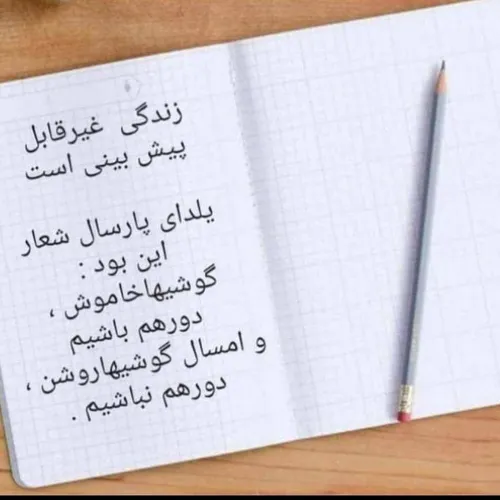 زندگی غیرقابل
پیش بینی است
یلدای پارسال شعار
این بود :
گوشیهاخاموش ،
دورهم باشیم
و امسال گوشیهاروشن ،
دورهم نباشیم .